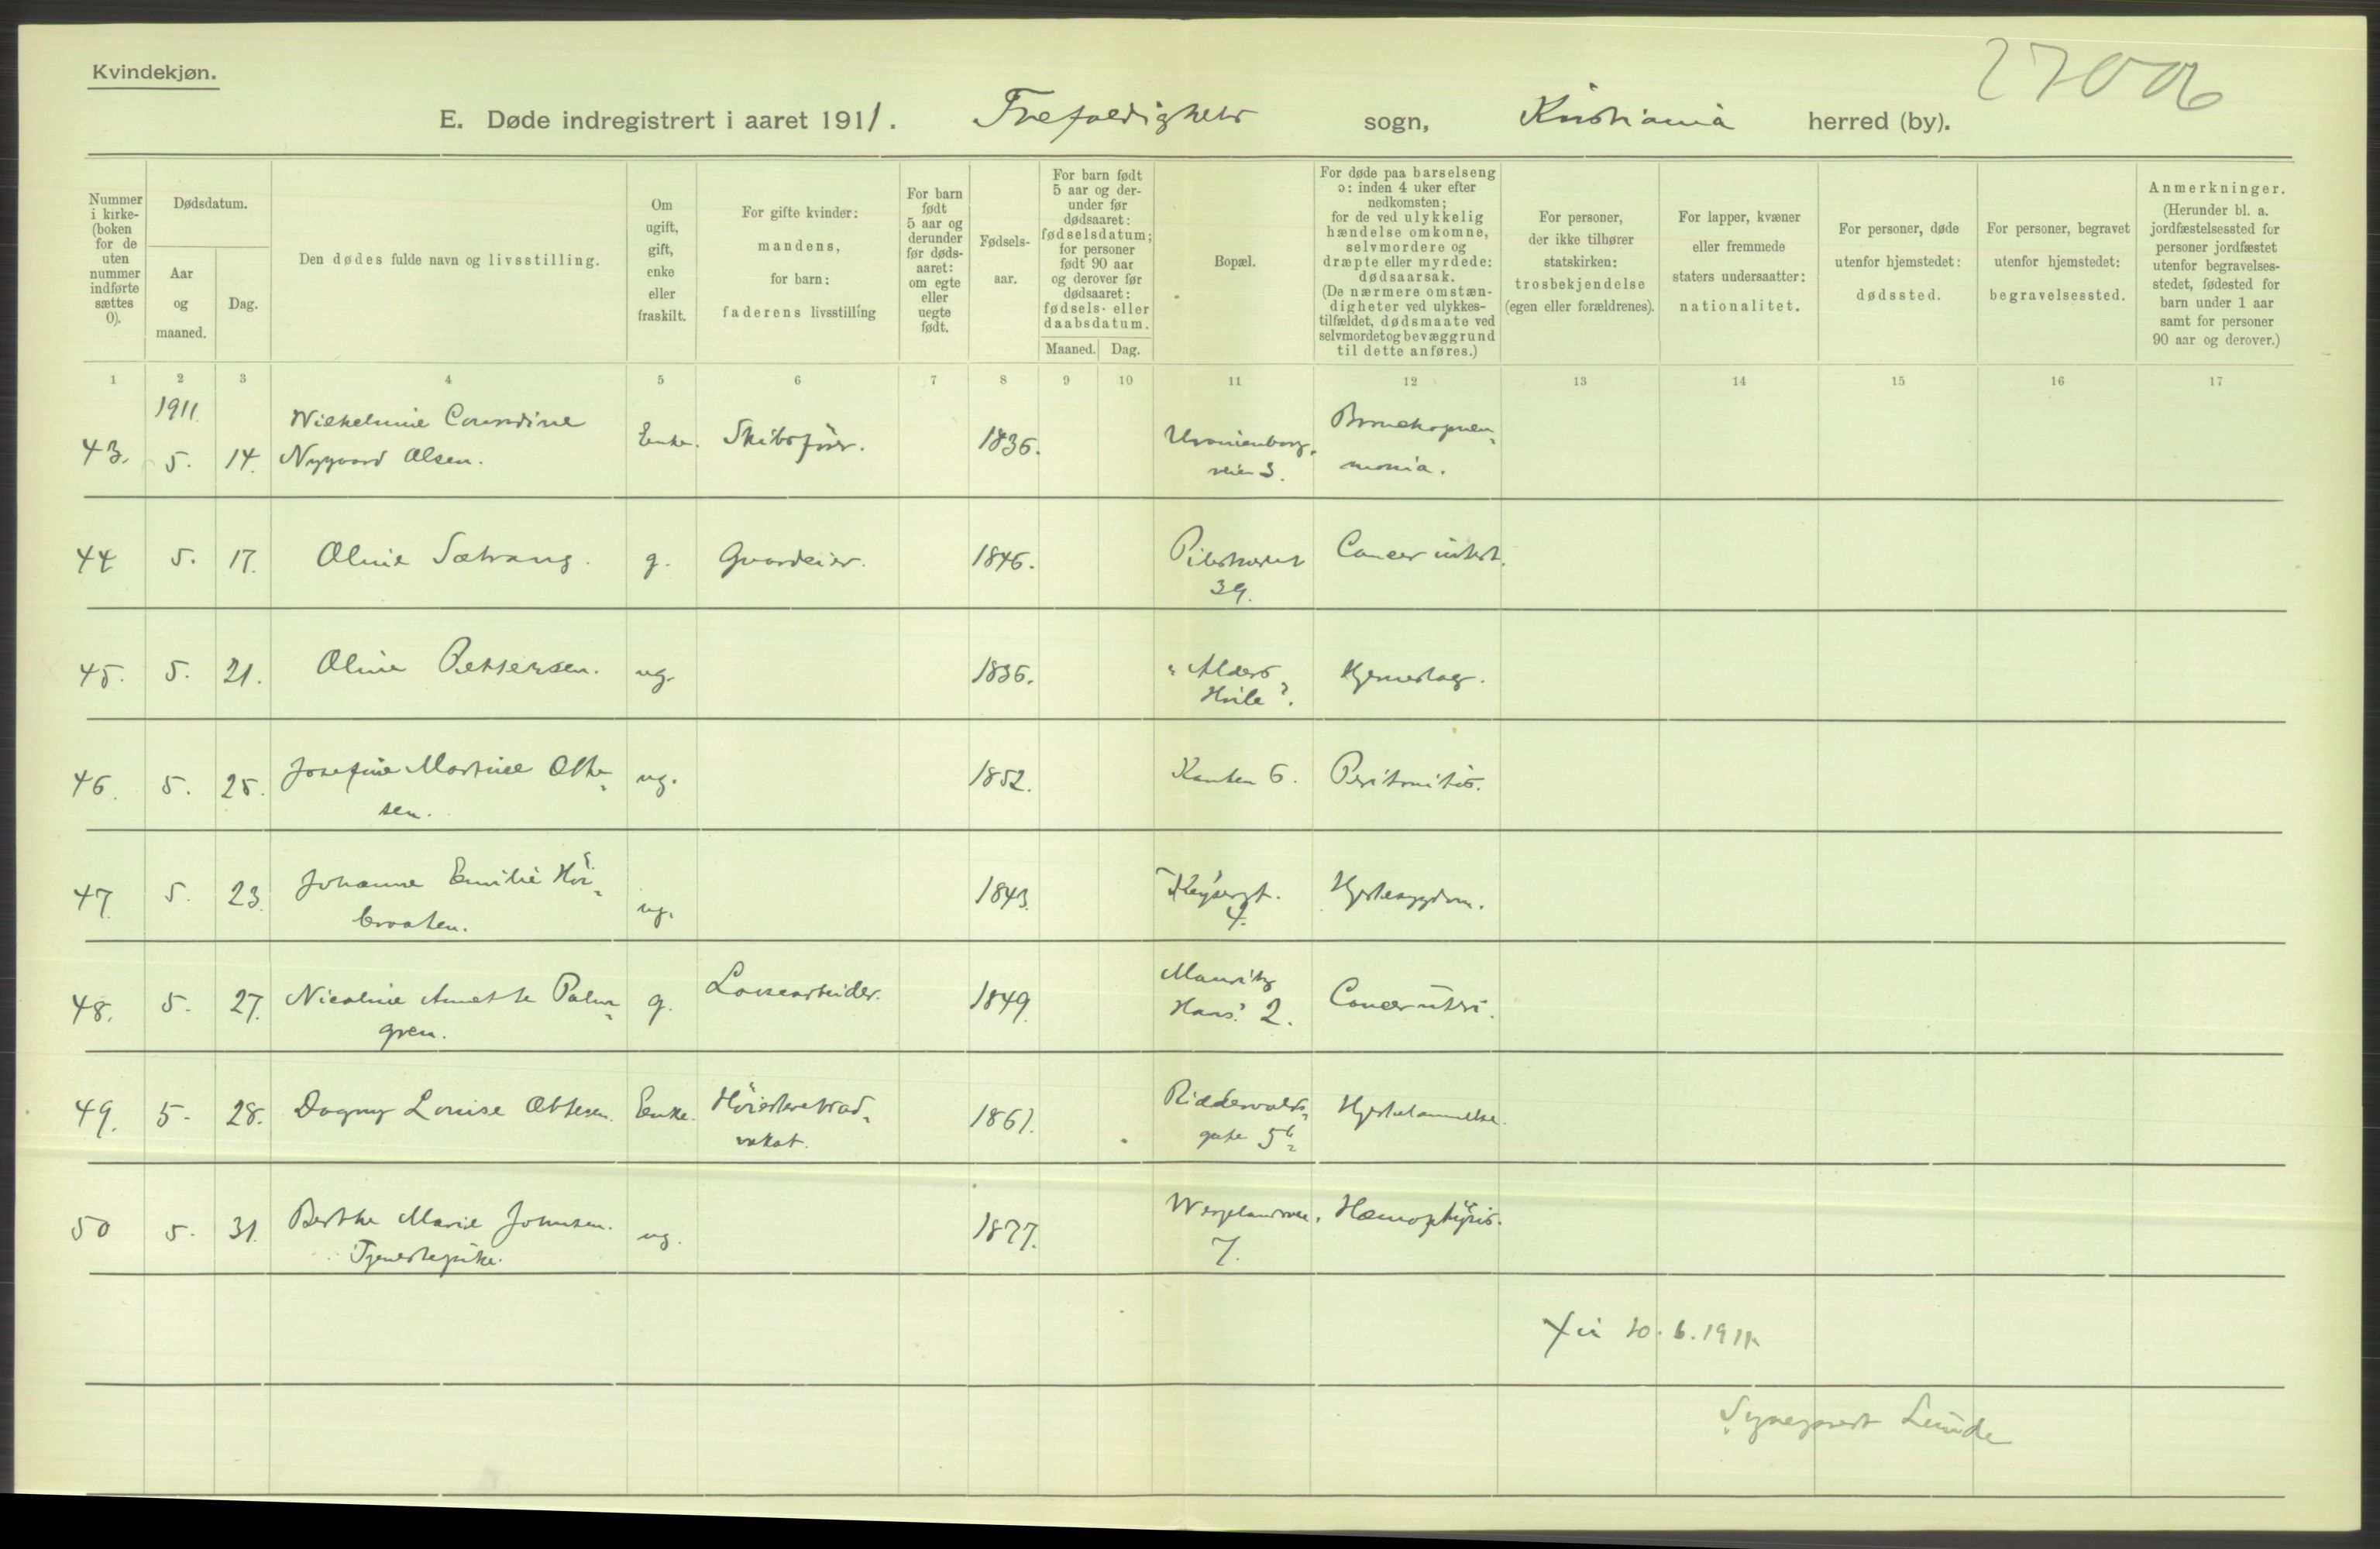 27006
Kvindekjøn.
E. Døde indregistrert i aaret 1911. Trefoldighets sogn, Kristiania herred (by).
Nummer i kirke- (boken for de uten nummer indførte sættes 0).
Dødsdatum.
Aar og maaned.
Dag.
Den dødes fulde navn og livsstilling.
Om ugift, gift, enke eller fraskilt.
For gifte kvinder: mandens, for barn: faderens livsstilling
For barn født 5 aar og derunder før døds- aaret: om egte eller uegte født.
Fødsels- aar.
For barn født 5 aar og der- under før dødsaaret: fødselsdatum; for personer født 90 aar og derover før dødsaaret: fødsels- eller daabsdatum.
Maaned. Dag.
Bopæl.
For døde paa barselseng ɔ: inden 4 uker efter nedkomsten; for de ved ulykkelig hændelse omkomne, selvmordere og dræpte eller myrdede: dødsaarsak. (De nærmere omstæn- digheter ved ulykkes- tilfældet, dødsmaate ved selvmordet og bevæggrund til dette anføres.)
For personer, der ikke tilhører statskirken: trosbekjendelse (egen eller forældrenes).
For lapper, kvæner eller fremmede staters undersaatter: nationalitet.
For personer, døde utenfor hjemstedet: dødssted.
For personer, begravet utenfor hjemstedet: begravelsessted.
Anmerkninger. (Herunder bl. a. jordfæstelsessted for personer jordfæstet utenfor begravelses- stedet, fødested for barn under 1 aar samt for personer 90 aar og derover.)
1 2 3 4 5 6 7 8 9 10 11 12 13 14 15 16 17
1911.
43. 5. 14. Wilhelmine
Nygaard Olsen. Enke. Skibsfører. 1836. Uranienborg- veien 3. Bronchopneu- monia.
44 5. 17. Oline Sætrang. g. Gaardeier. 1846. Pilestrædet 39. Cancer intest.
45. 5. 21. Oline Pettersen. ug. 1836. "Alders Hvile". Hjerneslag.
46. 5. 25. Josefine Martine Otte-
sen. ug. 1852. Kanten 6. Peritonitis.
47. 5. 23. Johanne Emilie Hör-
braaten. ug. 1843. Keysersgt. 4. Hjertesygdom.
48. 5. 27. Nicoline Anette Palm-
gren. g. Løsearbeider. 1849. Mauritz Hans. 2. Cancer uteri.
49. 5. 28. Dagny Louise Ottesen. Enke. Höiesteretsad-
vokat. 1861. Riddervolds- gate 5b. Hjertelammelse.
50 5. 31. Berthe Marie Johnsen.
Tjenestepike. ug. 1877. Wergelandsvei. 7. Hæmoptysis.
10.6.1911
Sognepræst Lunde